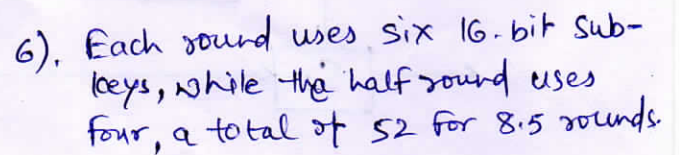 6). Each round uses six 16-bit Sub-
keys, while the half round uses
four, a total of 52 for 8.5 rounds.